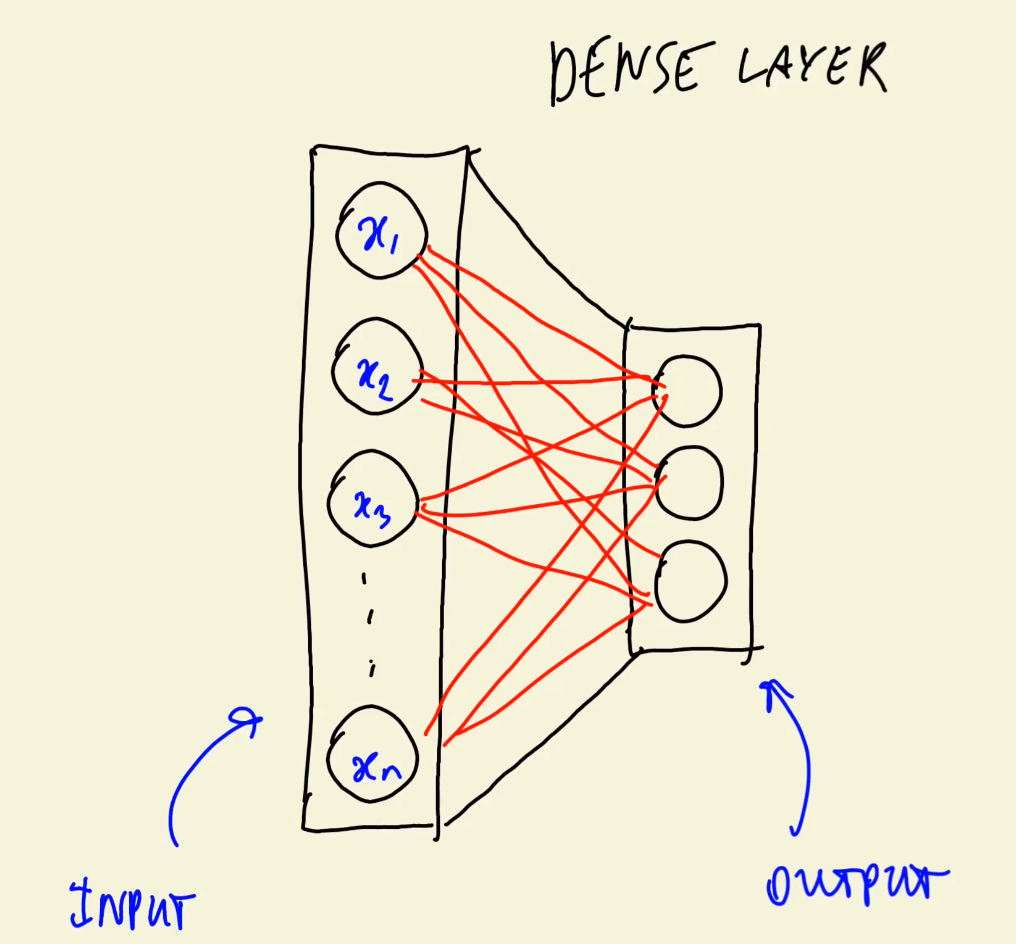 DENSE LAYER
x1
x2
x3
xn
INPUT
OUTPUT